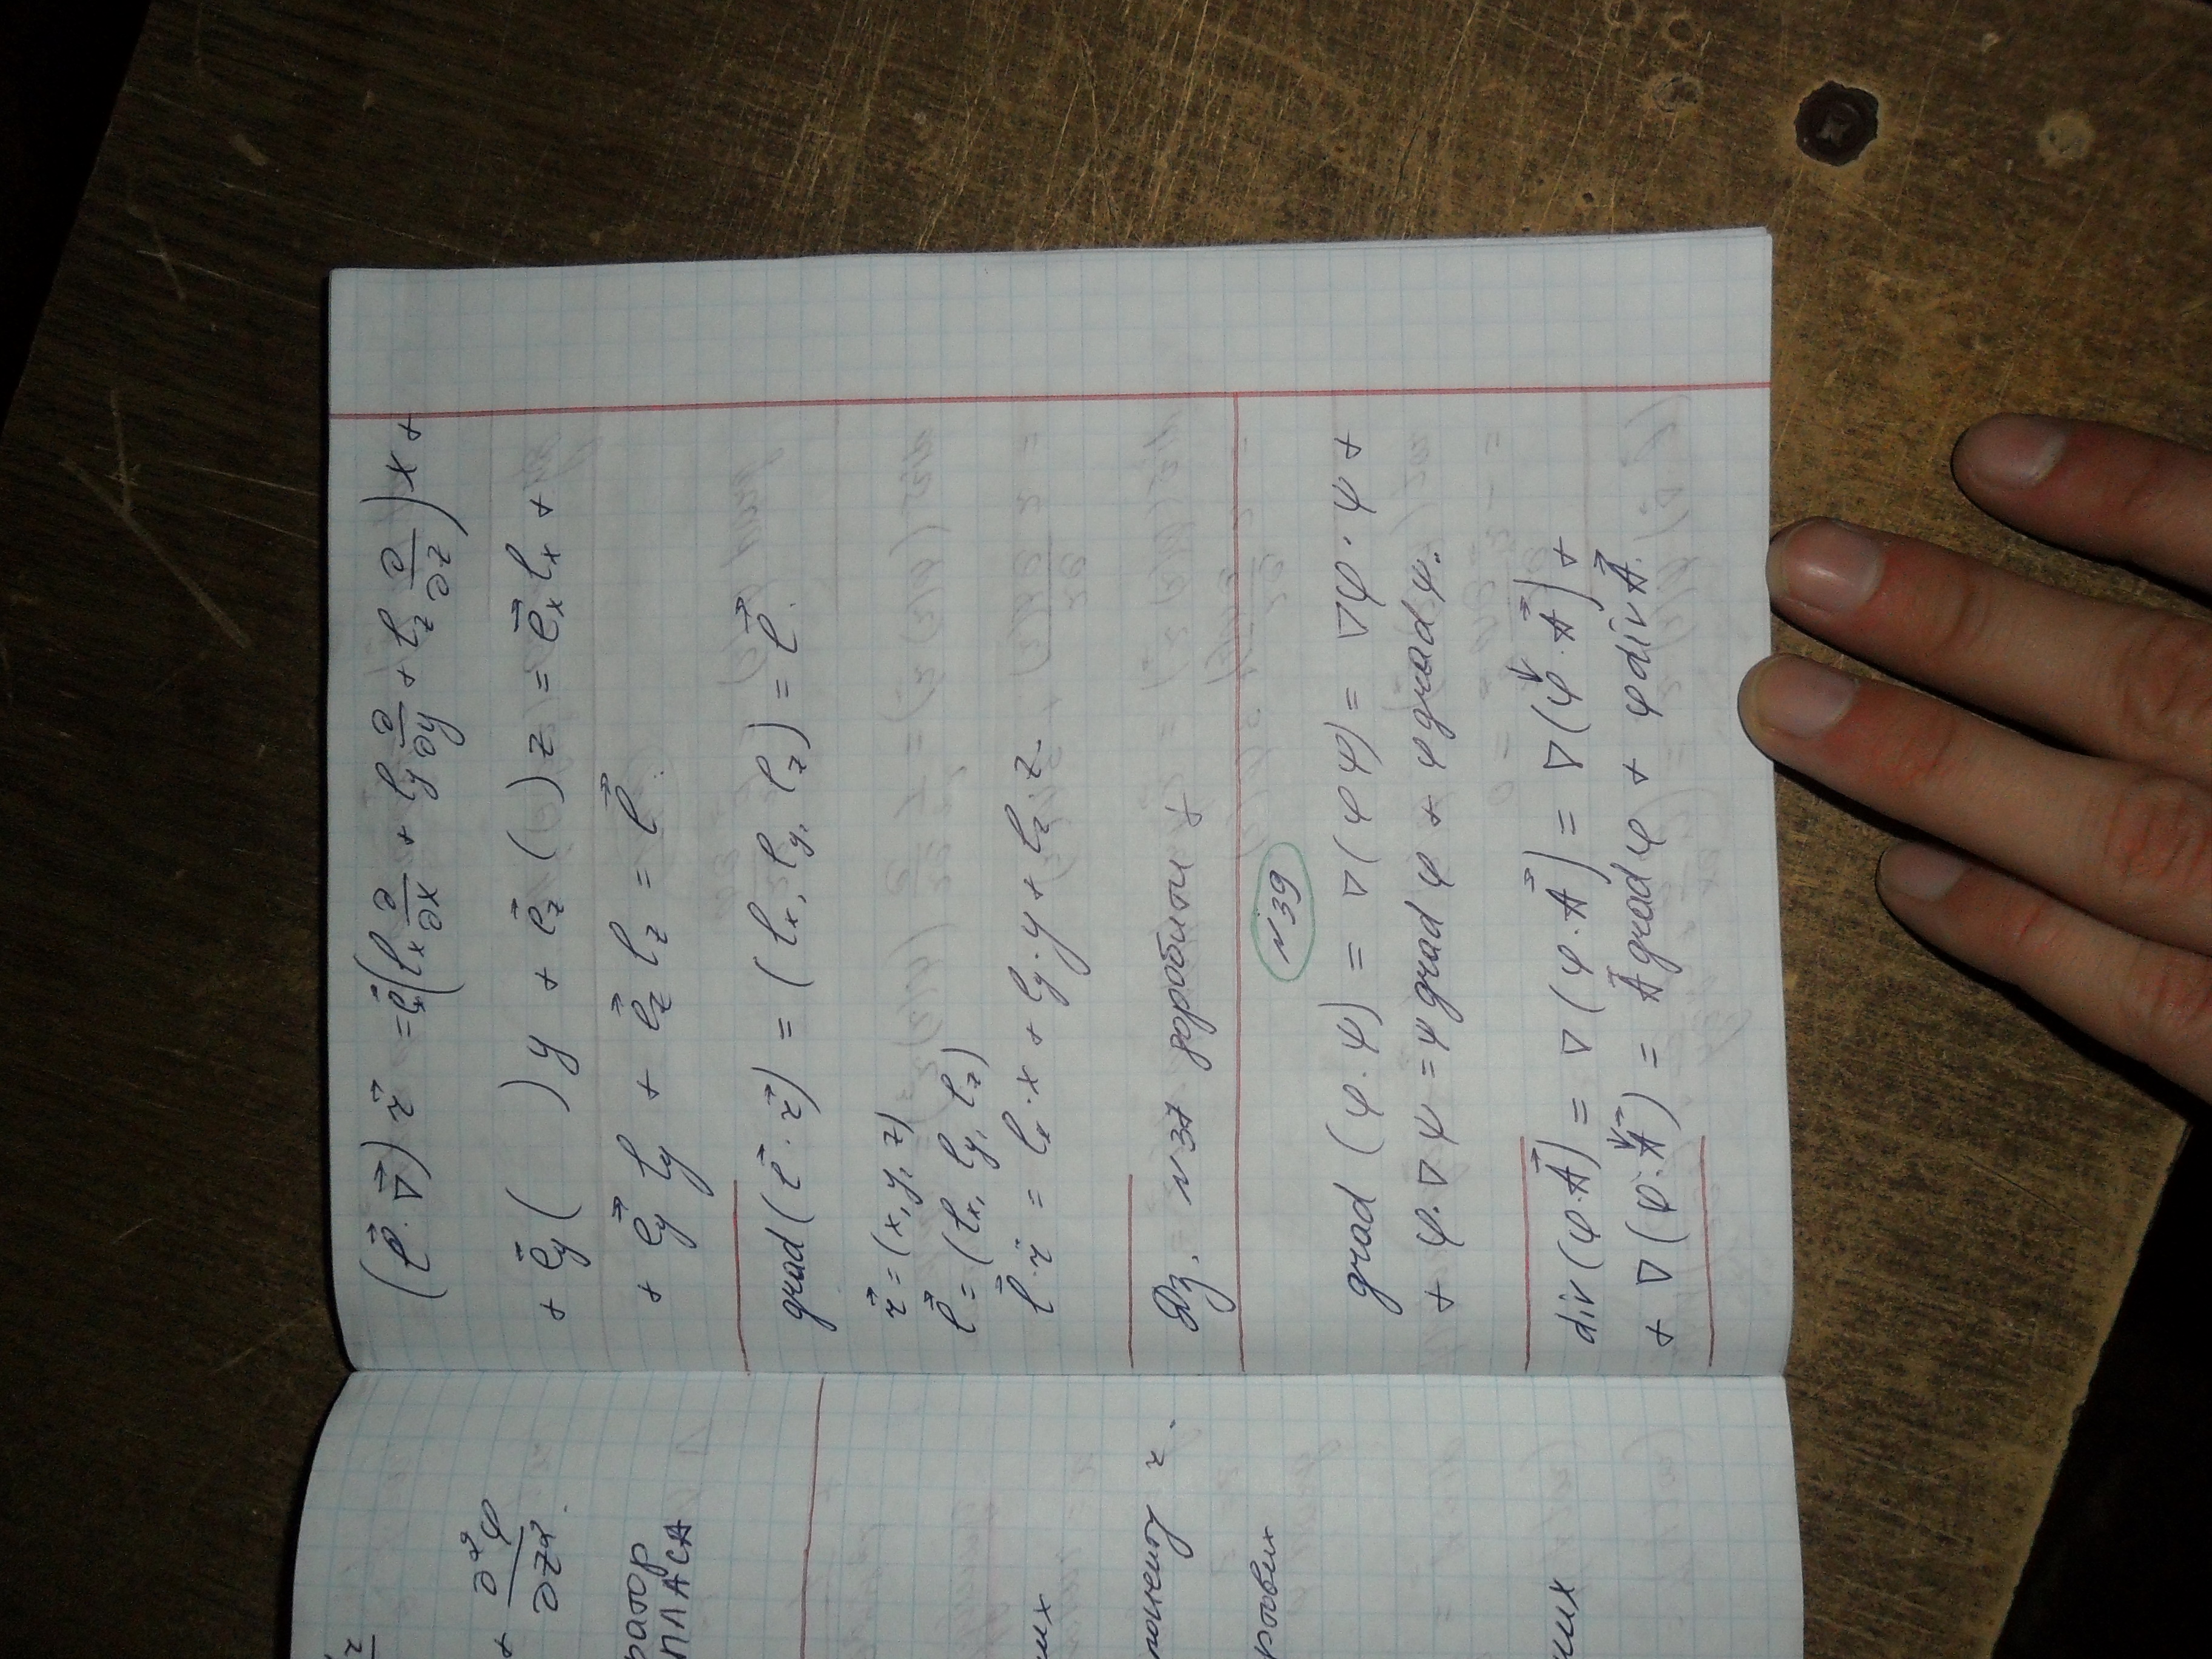 (l⃗·∇⃗) r⃗ = e⃗x(lx ∂/∂x + ly ∂/∂y + lz ∂/∂z)x +
+ e⃗y( )y + e⃗z( )z = e⃗x lx +
+ e⃗y ly + e⃗z lz = l⃗.
grad(l⃗·r⃗) = (lx, ly, lz) = l⃗.
r⃗ = (x, y, z)
l⃗ = (lx, ly, lz)
l⃗·r⃗ = lx·x + ly·y + lz·z.
Дз. N37 доробити +
N39
grad (φ·ψ) = ∇(φψ) = ∇φ·ψ +
+ φ·∇ψ = ψ grad φ + φ grad ψ.
div(φ·A⃗) = ∇(φ·A⃗) = ∇(φ·A⃗) +
+ ∇(φ·A⃗) = A⃗ grad φ + φ div A⃗.
+ ∂²φ/∂z².
ратор
ПЛАСА
их
поненту r.
ртових
них